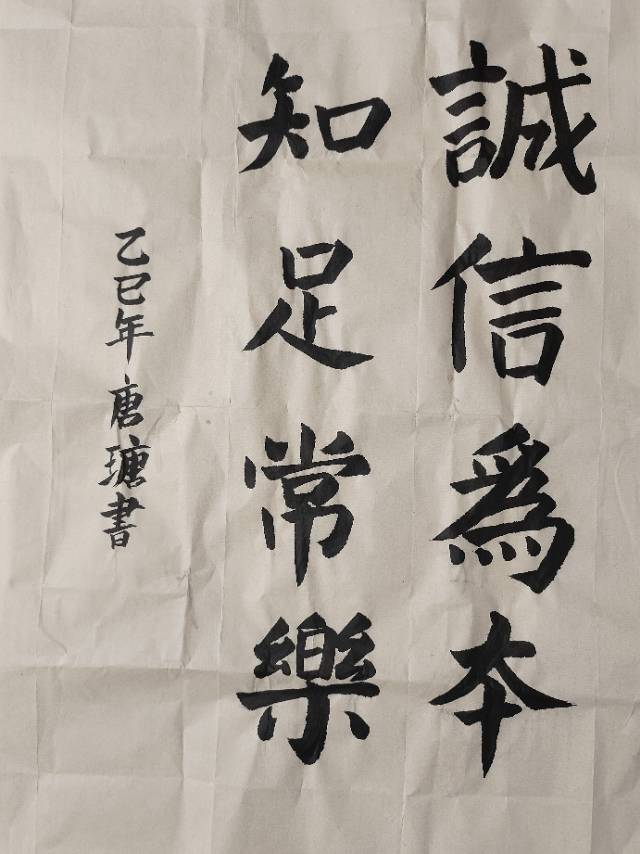 誠信為本
知足常樂
乙巳年 唐瑭書